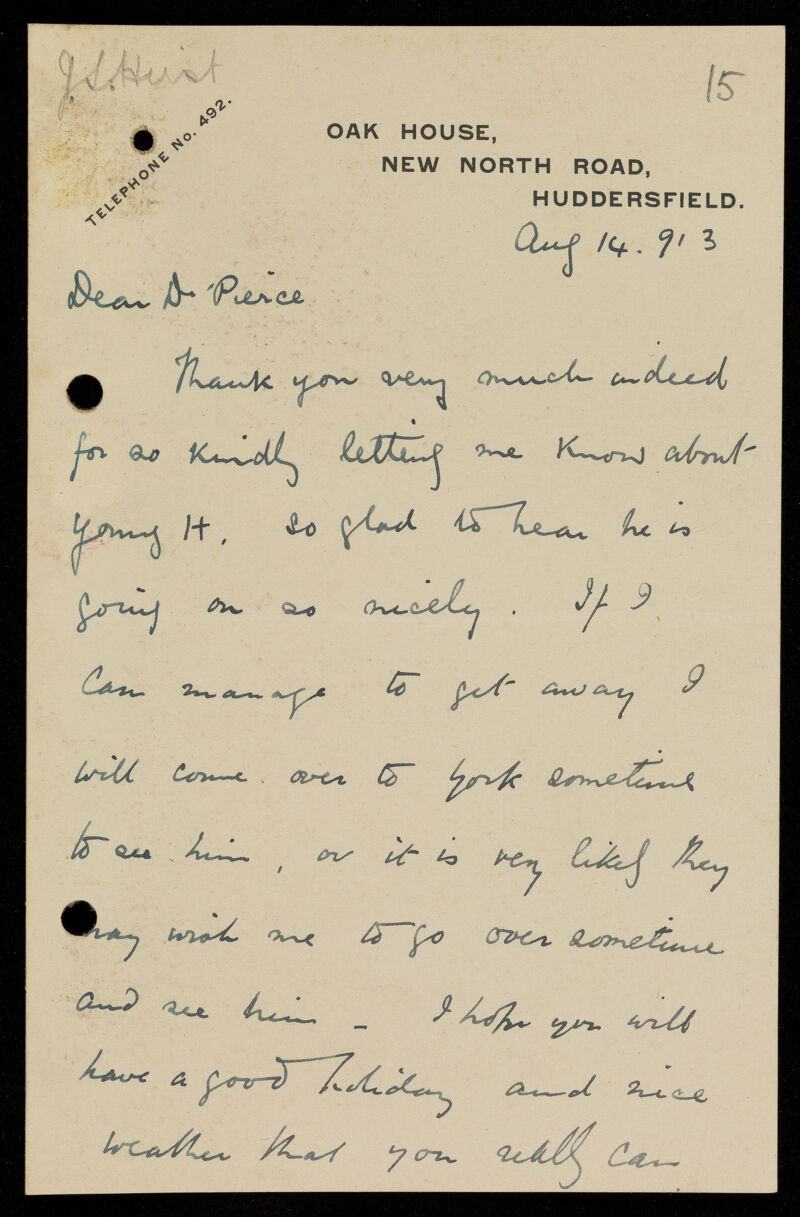 J. S. Hirst
15
TELEPHONE No. 492.
OAK HOUSE,
NEW NORTH ROAD,
HUDDERSFIELD.
Aug 14. 913
Dear Dr Pierce
Thank you very much indeed
for so kindly letting me know about
young H. so glad to hear he is
going on so nicely. If I
can manage to get away I
will come over to York sometime
to see him, or it is very likely they
may wish me to go over sometime
and see him - I hope you will
have a good holiday and nice
weather that you really can